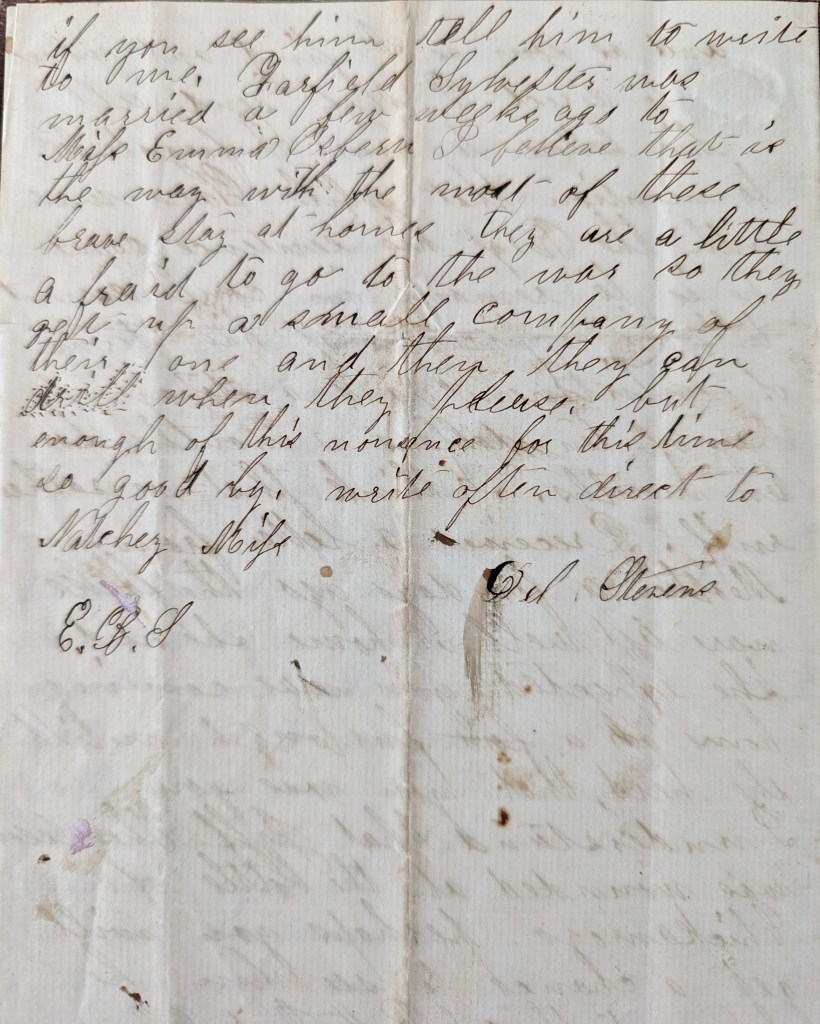 if you see him tell him to write
to me. Farfield Sylvester was
married a few weeks ago to
Miss Emma Osbern I believe that is
the way with the most of these
brave stay at homes they are a little
a fraid to go to the war so they
get up a small company of
their one and then they can
drill when they please. but
enough of this nonsance for this time
so good by. write often direct to
Natchez Miss
Del Stevens
E. B. S